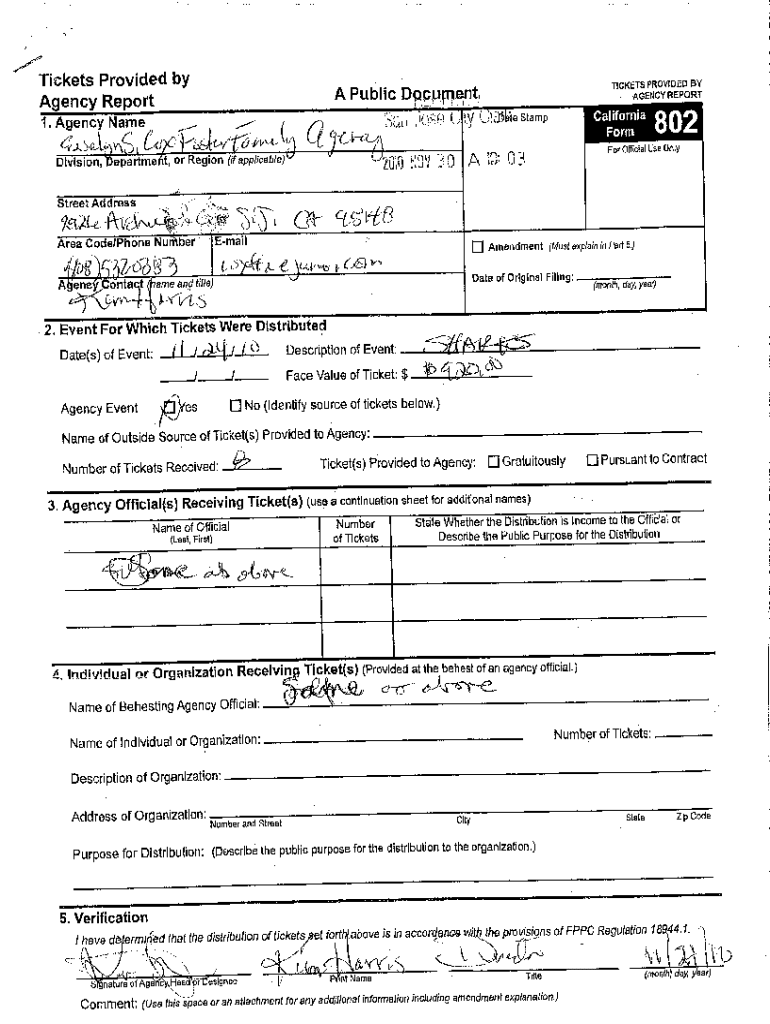 Tickets Provided by
Agency Report
A Public Document
TICKETS PROVIDED BY
AGENCY REPORT
1. Agency Name
San Jose City Clerk
Date Stamp
California
Form 802
For Official Use Only
Cox Foster Family Agency
Division, Department, or Region (if applicable)
2010 NOV 30 A 10: 03
Street Address
S.J. CA 95148
Area Code/Phone Number
E-mail
Amendment (Must explain in Part 5.)
(408)
Agency Contact (name and title)
Date of Original Filing:
(month, day, year)
Kim Harris
2. Event For Which Tickets Were Distributed
Date(s) of Event: 11/24/10
Description of Event: SHARKS
/ /
Face Value of Ticket: $
Agency Event
Yes
No (Identify source of tickets below.)
Name of Outside Source of Ticket(s) Provided to Agency:
Number of Tickets Received: 8
Ticket(s) Provided to Agency:
Gratuitously
Pursuant to Contract
3. Agency Official(s) Receiving Ticket(s) (use a continuation sheet for additional names)
Name of Official
(Last, First)
Number
of Tickets
State Whether the Distribution is Income to the Official or
Describe the Public Purpose for the Distribution
Same as above
4. Individual or Organization Receiving Ticket(s) (Provided at the behest of an agency official.)
Name of Behesting Agency Official: Same as above
Name of Individual or Organization:
Number of Tickets:
Description of Organization:
Address of Organization:
Number and Street
City
State
Zip Code
Purpose for Distribution: (Describe the public purpose for the distribution to the organization.)
5. Verification
I have determined that the distribution of tickets set forth above is in accordance with the provisions of FPPC Regulation 18944.1.
Kim Harris
Director
Signature of Agency Head or Designee
Print Name
Title
(month, day, year)
Comment: (Use this space or an attachment for any additional information including amendment explanation.)